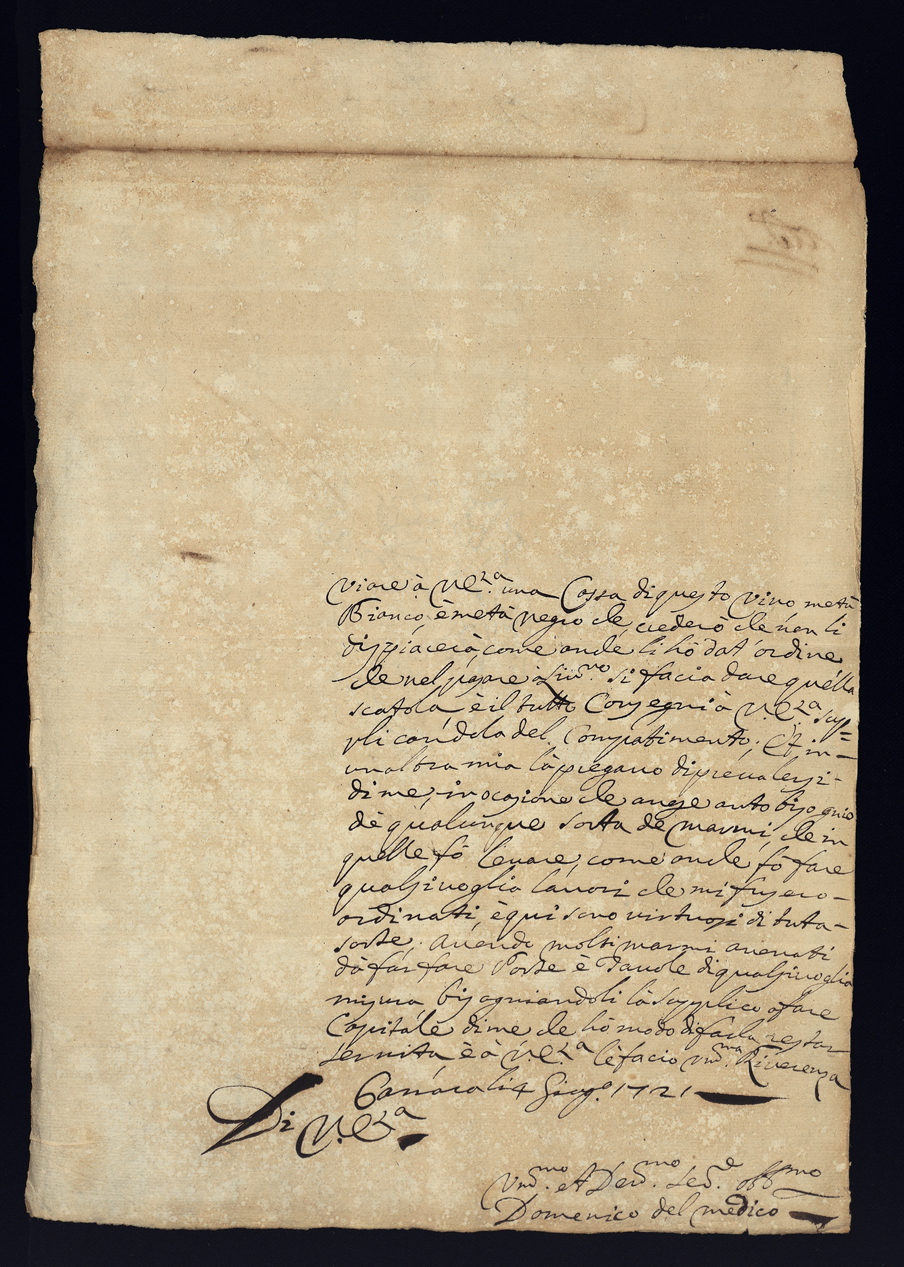 viare à V. Ecz.ª una Cassa di questo vino metà
Bianco, è metà negro che, crederò che non li
dispiacerà come anche li hò dat'ordine
che nel pasare à Liv.no si facia dare quella
scatola è il tutto Consegni à V. Ecz.ª sup=
plicandola del Compatimento; Et in-
unaltra mia là pregavo di prevalersi-
di me, in ocasione che avese auto bisognio
dè qualunque sorta dè marmi, che in
quelle fò levare, come anche fò fare
qualsivoglia lavori che mi fusero-
ordinati, è qui sono virtuosi di tuta-
sorte; avendo molti marmi
dà far fare Porte è Tavole di qualsivoglia
misura bisogniandoli là supplico a fare
Capitale di me che hò modo di farla restar
servita è à V. Ecz.ª lè facio um.ma Riverenza
Carrara li 4 Giug.o 1721
Di V. Ecz.ª
Um.mo et Dev.mo Ser.e obb.mo
Domenico del medico